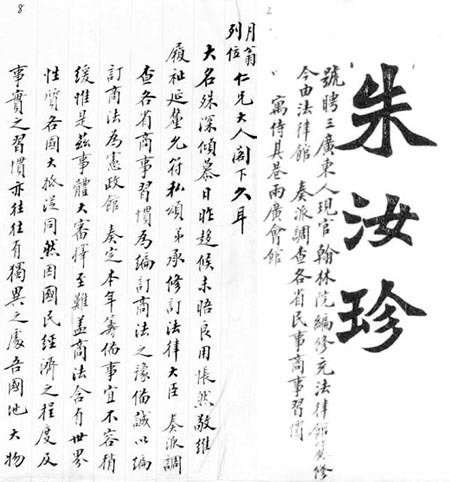 2
朱汝珍
號聘三廣東人現官翰林院編修充法律館纂修
今由法律館 奏派調查各省民事商事習慣
寓侍其巷兩廣會館
8
月翁
列位
仁兄大人閣下久耳
大名殊深傾慕日昨趨候未晤良用悵然敬維
履祉延釐允符私頌弟承修訂法律大臣 奏派調
查各省商事習慣為編訂商法之豫備誠以編
訂商法為憲政館 奏定本年籌備事宜不容稍
緩惟是茲事體大審擇至難蓋商法含有世界
性質各國大抵從同然因國民經濟之程度及
事實之習慣亦往往有獨異之處吾國地大物